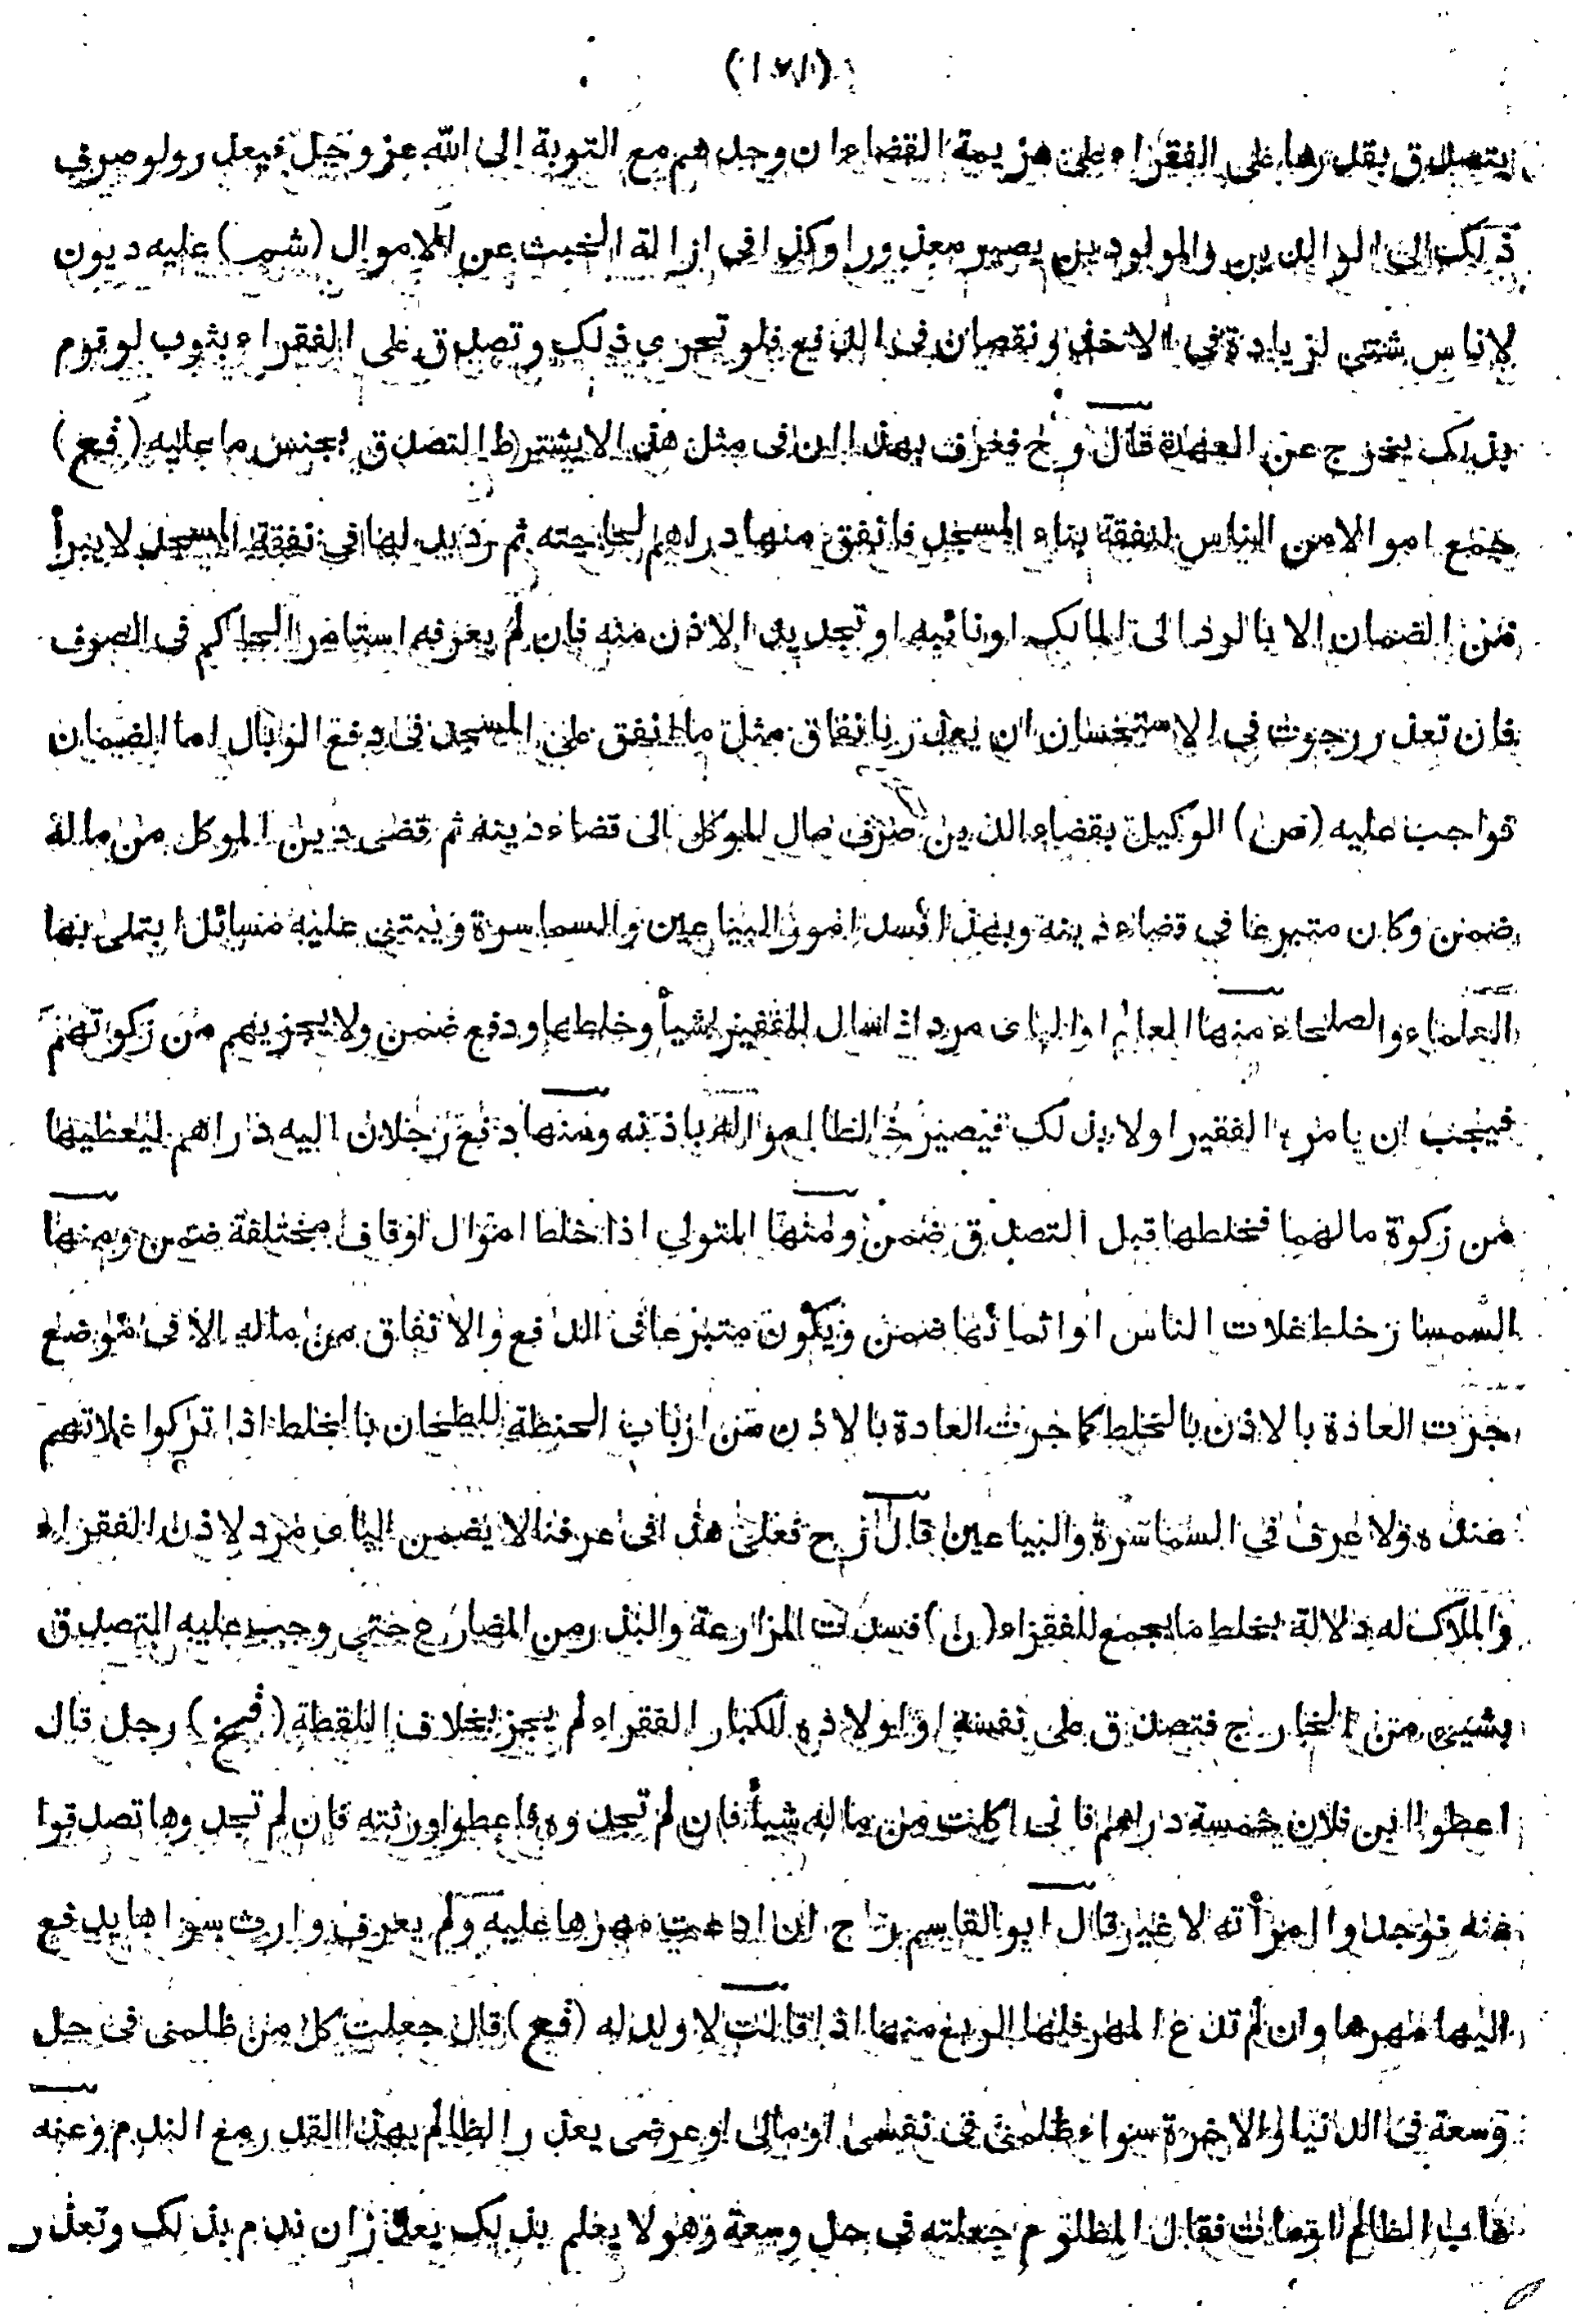 (١٧١)
يتصدق بقدرها على الفقراء على عزيمة القضاء ان وجدهم مع التوبة الى الله عز وجل فيعذر ولو صرف
ذلك الى الوالدين والمولودين يصير معذورا وكذا فى ازالة الخبث عن الاموال (شم) عليه ديون
لاناس شتى لزيادة في الاخذ ونقصان فى الدفع فلو تحرى ذلك وتصدق على الفقراء بثوب لو قوم
بذلك يخرج عن العهدة قال رح فعرف بهذا ان فى مثل هذا لا يشترط التصدق بجنس ما عليه (فع)
جمع اموالا من الناس لنفقة بناء المسجد فانفق منها دراهم لحاجته ثم رد بدلها في نفقة المسجد لا يبرأ
من الضمان الا بالرد الى المالك او نائبه او تجديد الاذن منه فان لم يعرفه استامر الحاكم فى الصرف
فان تعذر رجوت في الاستحسان ان يعذر بانفاق مثل ما انفق على المسجد فى دفع الوبال اما الضمان
فواجب عليه (ص) الوكيل بقضاء الدين صرف مال الموكل الى قضاء دينه ثم قضى دين الموكل من ماله
ضمن وكان متبرعا في قضاء دينه وبهذا فسد امور البياعين والسماسرة ويبتنى عليه مسائل ابتلى بها
العلماء والصلحاء منها العالم او الپاى مرد اذا سال للفقير شيأ وخلطها ودفع ضمن ولا يجزيهم من زكوتهم
فيجب ان يامره الفقير اولا بذلك فيصير خالطا لمواله باذنه ومنها دفع رجلان اليه دراهم ليعطيها
من زكوة مالهما فخلطها قبل التصدق ضمن ومنها المتولى اذا خلط اموال اوقاف مختلفة ضمن ومنها
السمسار خلط غلات الناس او اثمانها ضمن ويكون متبرعا فى الدفع والانفاق من ماله الا فى موضع
جرت العادة بالاذن بالخلط كما جرت العادة بالاذن من ارباب الحنطة للطحان بالخلط اذا تركوا غلاتهم
عنده ولا عرف في السماسرة والبياعين قال رح فعلى هذا فى عرفنا لا يضمن الپاى مرد لاذن الفقراء
والملاك له دلالة بخلط ما يجمع للفقراء (ن) فسدت المزارعة والبذر من المضارع حتى وجب عليه التصدق
بشيىء من الخارج فتصدق على نفسه او اولاده الكبار الفقراء لم يجز بخلاف اللقطة (فمخ) رجل قال
اعطوا ابن فلان خمسة دراهم فانى اكلت من ماله شيأ فان لم تجدوه فاعطوا ورثته فان لم تجدوها تصدقوا
عنه فوجدوا امرأته لا غير قال ابو القاسم رح ان ادعت مهرها عليه ولم يعرف وارث سواها يدفع
اليها مهرها وان لم تدع المهر فلها الربع منها اذا قالت لا ولد له (فع) قال جعلت كل من ظلمنى فى حل
وسعة فى الدنيا والاخرة سواء ظلمنى فى نفسى او مالى او عرضى يعذر الظالم بهذا القدر مع الندم وعنه
غاب الظالم او مات فقال المظلوم جعلته فى حل وسعة وهو لا يعلم بذلك يعذر ان ندم بذلك وتعذر